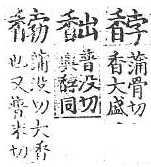 馞
蒲骨切
香大盛
普没切
與馞同
蒲没切大香
也又普末切